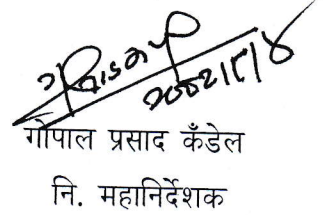 गोपाल प्रसाद कँडेल
नि. महानिर्देशक